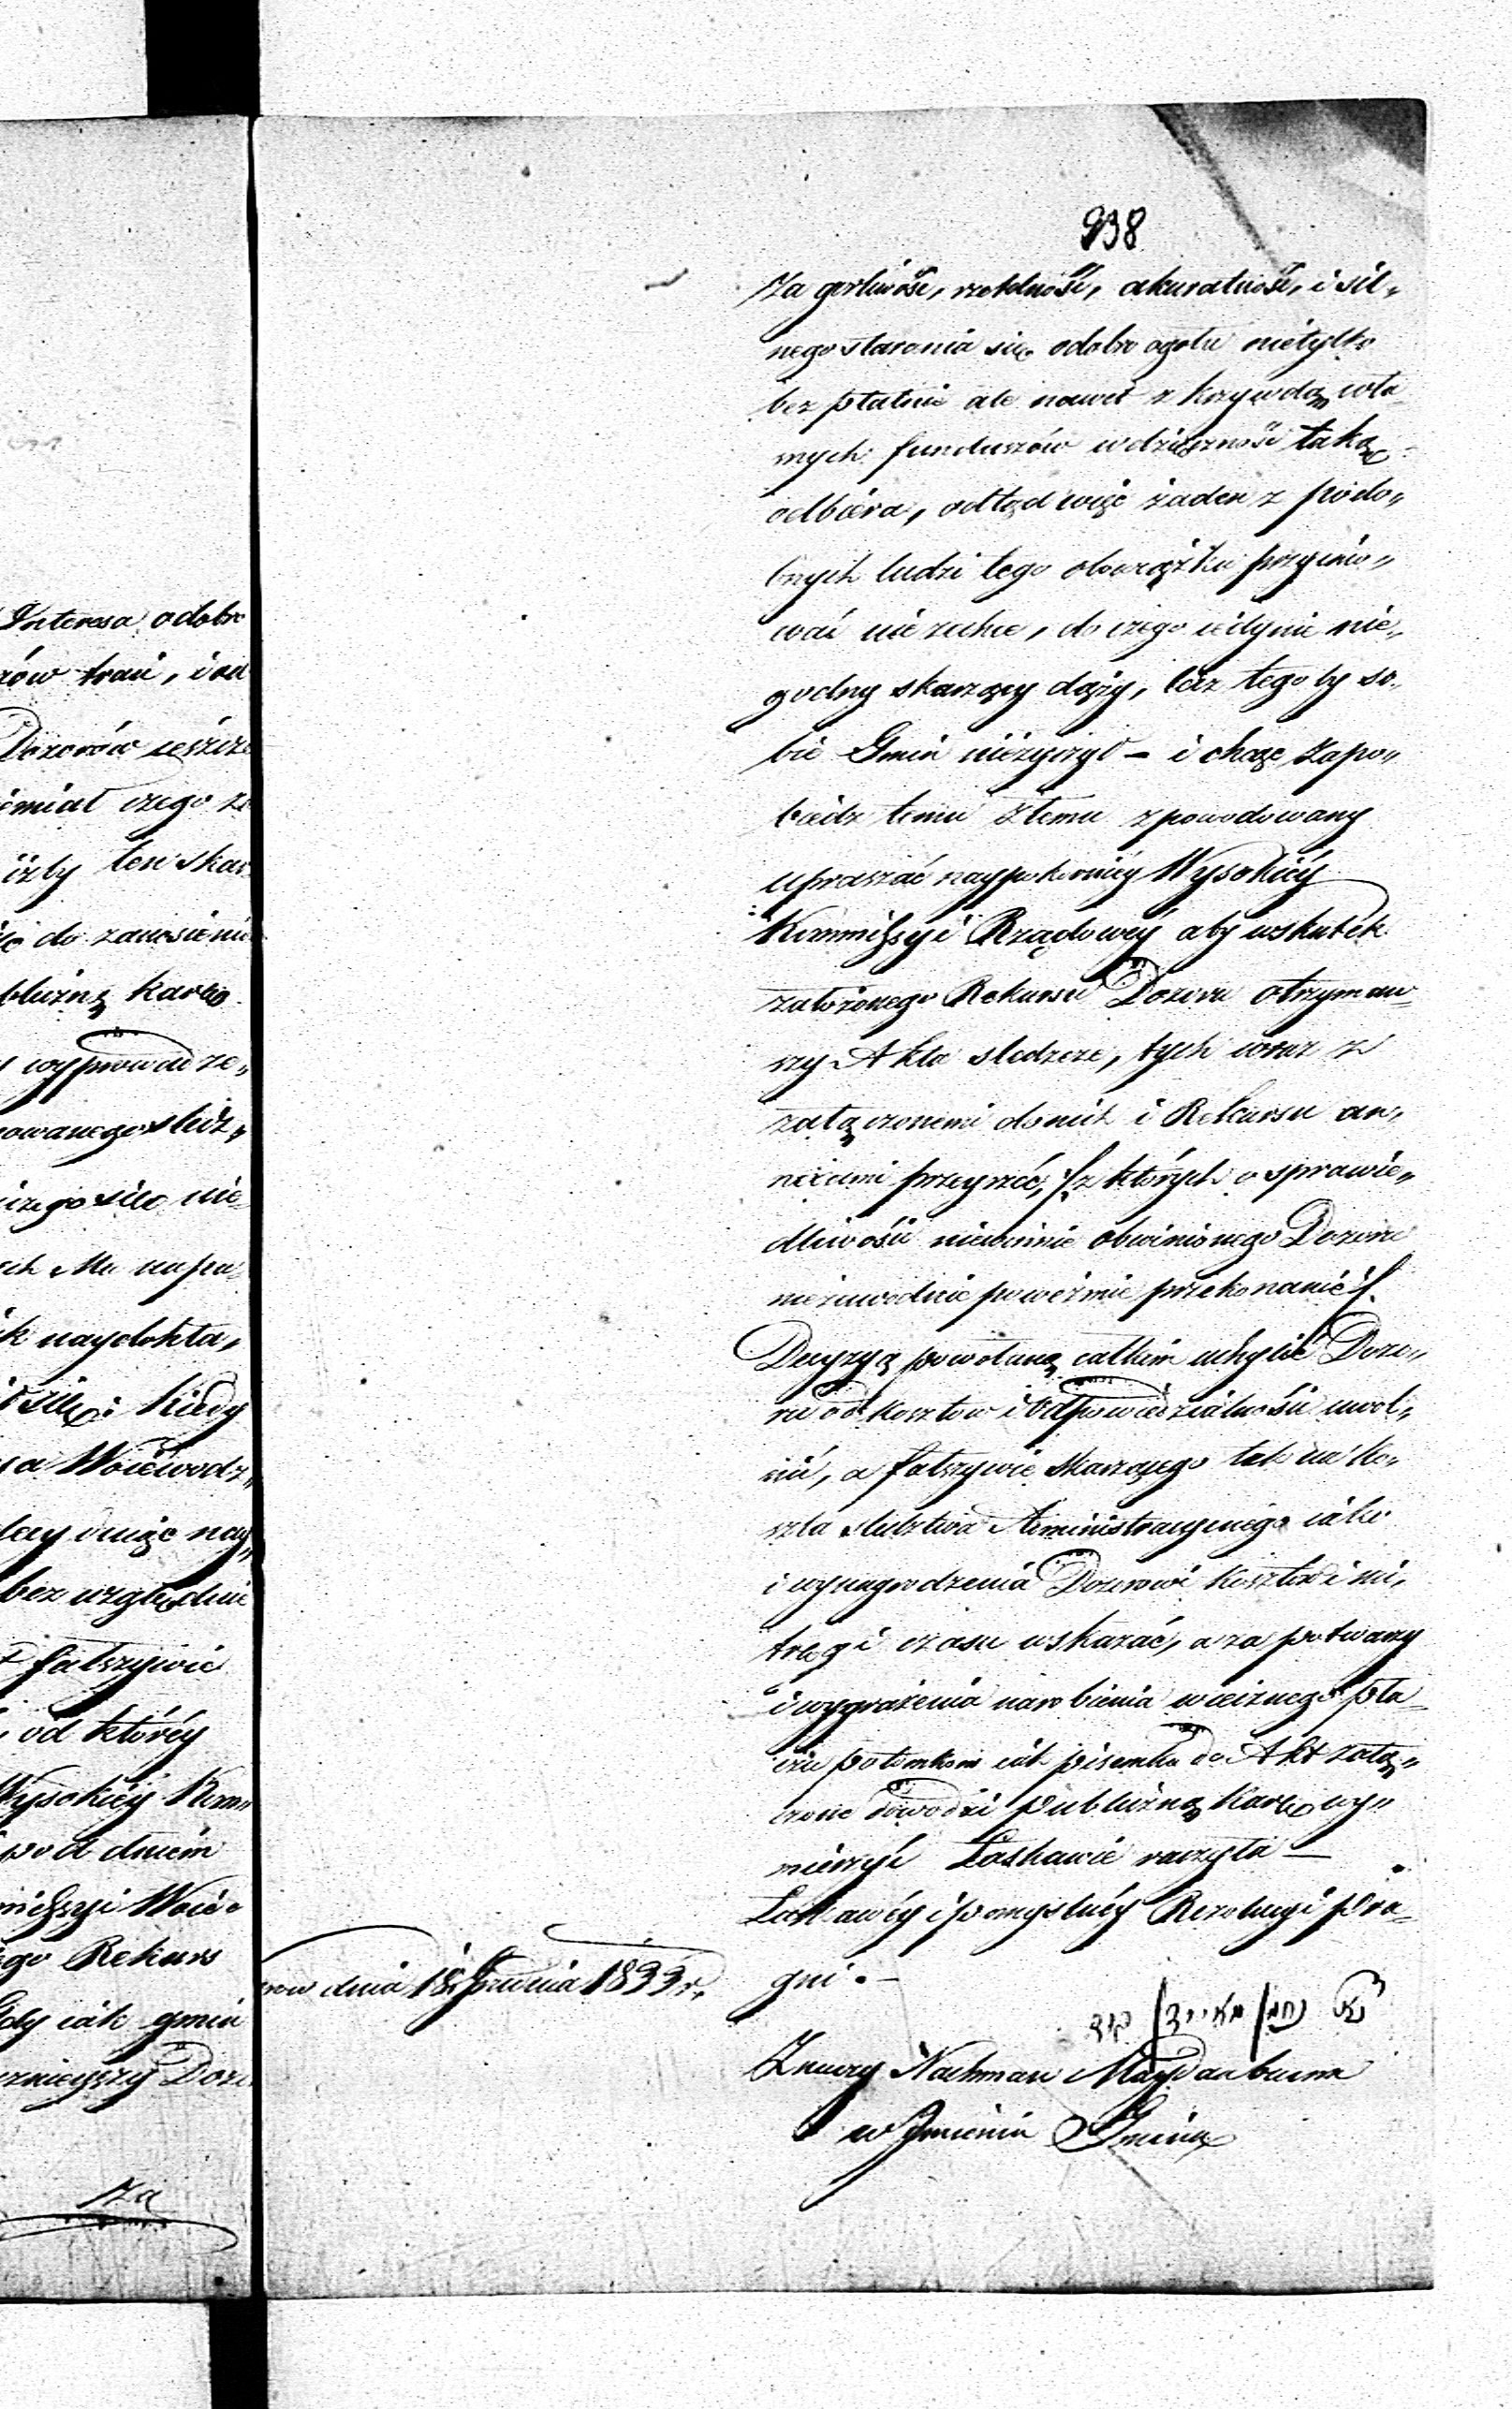 Interesa o dobro
zów traci, i od
Dozorów jeszcze
miał czego
iżby ten skar
do zaniesienia
bliczną karę
wyprowadze„
owanego śledz„
nie
ch Mu napa
k naydokła„
Kiedy
Woiewodz„
nay„
bez względnie
fałszywie
od któréy
Wysokiéy Kom„
pod dniem
mißyi Woie„
go Rekurs
gdy iak gmin
Dozo
Za
938
Za gorliwość, rzetelność, akuratność, i sil„
nego starania się o dobro ogołu nietylko
bez płatnie ale nawet z krzywdą wła
snych funduszów wdzięczność taką
odbiera, odtąd więc żaden z podo„
bnych ludzi tego obowiązku przyimo„
wać nie zechce, do czego iedynie nie„
godny skarzący dąży, lecz tego by so„
bie Gmin nieżyczył – i chcąc zapo„
biedz temu złemu zpowodowany
upraszać naypokorniéy Wysokiéy
Kommißyi Rządowéy aby wskutek
założonego Rekursu Dozoru otrzymaw„
szy Akta śledcze, tych wraz z
załączonemi do nich i Rekursu an„
nexami przeyrzeć, /: z których o sprawie„
dliwości niewinnie obwinionego Dozoru
niezawodnie poweźmie przekonanie :/
Decyzyą powołaną całkiem uchylić Dozo„
ru od kosztów i odpowiedzialności uwol„
nić, a fałszywie skarzącego tak na ko„
szta śledztwa Administracyinego iako
i wynagrodzenia Dozorowi kosztów i mi„
tręgi czasu wskazać, a za potwarzy
i wygrażenia narobienia wiecznego pła
czu potomkom iak pisemka do Akt załą„
czone dowodzi publiczną karę wy„
mierzyć Łaskawie raczyła –
Łaskawéy i pomyślnéy Rezolucyi pra„
gni. –
dnia 18 Grudnia 1833 r.
Znaczy Nachman Maydanbaum
w Jmieniu Gminu